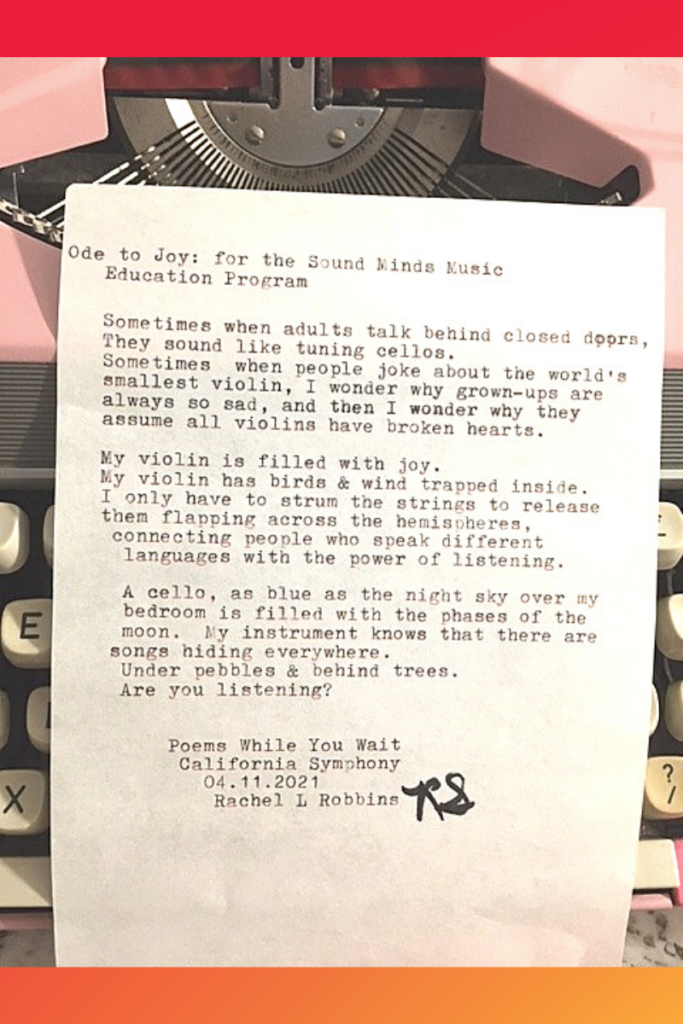 Ode to Joy: for the Sound Minds Music
Education Program
Sometimes when adults talk behind closed doors,
They sound like tuning cellos.
Sometimes when people joke about the world's
smallest violin, I wonder why grown-ups are
always so sad, and then I wonder why they
assume all violins have broken hearts.
My violin is filled with joy.
My violin has birds & wind trapped inside.
I only have to strum the strings to release
them flapping across the hemispheres,
connecting people who speak different
languages with the power of listening.
A cello, as blue as the night sky over my
bedroom is filled with the phases of the
moon. My instrument knows that there are
songs hiding everywhere.
Under pebbles & behind trees.
Are you listening?
Poems While You Wait
California Symphony
04.11.2021
Rachel L Robbins RS
E
X
?
/